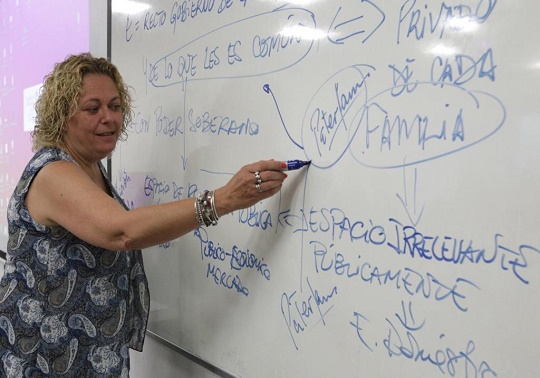 E = RECTO GOBIERNO DE
Y DE LO QUE LES ES COMÚN
CON PODER SOBERANO
PRIVADO
DE CADA
FAMILIA
Paterfam.
ESPACIO DE
ESPACIO IRRELEVANTE
PÚBLICAMENTE
PÚBLICO-ECONÓMICO
MERCADO
Paterfam.